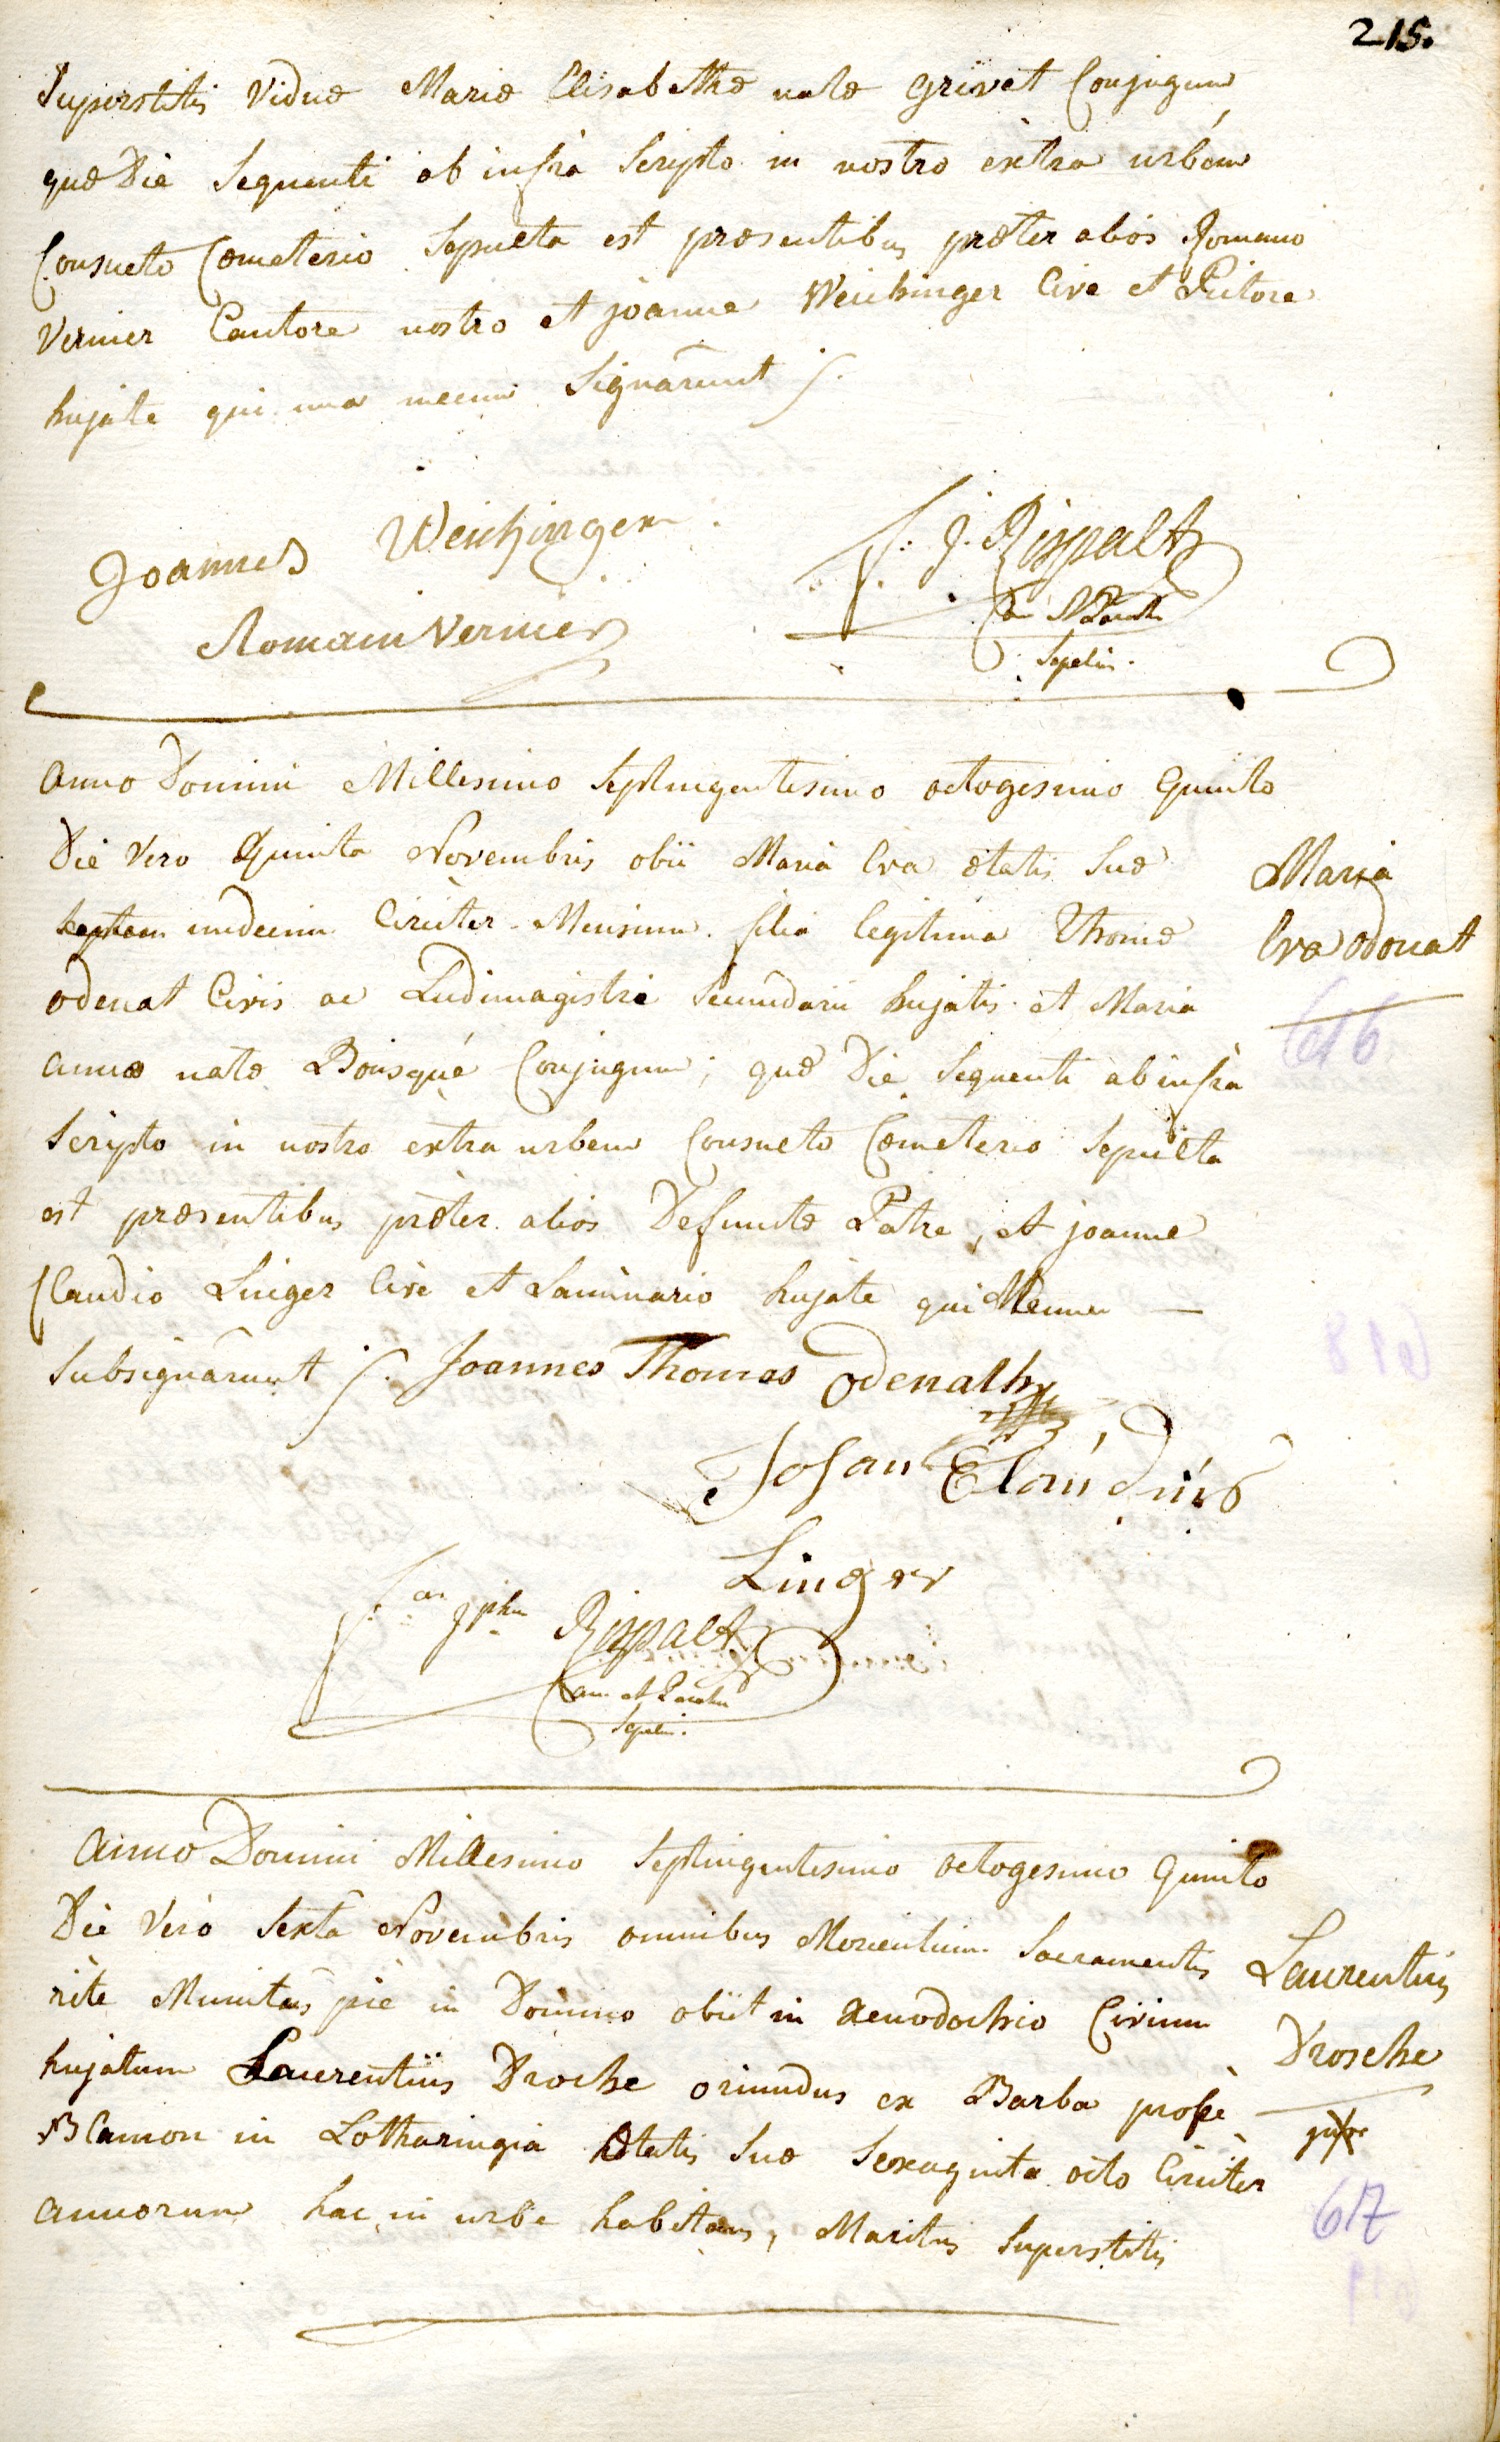 215.
Superstitis Viduæ Mariæ Elisabethæ natæ Grivet Conjugum
quæ Die Sequenti ab infra Scripto in nostro extra urbem
Consueto Cœmeterio Sepulta est præsentibus præter alios Romano
Vernier Cantore nostro et joanne Weichinger Cive et Pictore
hujate qui una mecum Signârunt
Joannes Weichinger
f. j. Rispalt
Romain Vernier
Sepelivi.
Anno Domini Millesimo Septingentesimo octogesimo Quinto
Die Vero Quinta Novembris obii Maria Eva ætatis Suæ
Maria
undecim Circiter Mensium filia legitima Thomæ
Eva Odonat
odenat Civis ac Ludimagistri Secundarii hujatis et Maria
616
annæ natæ Boisqué Conjugum; quæ Die Sequenti ab infra
Scripto in nostro extra urbem Consueto Cœmeterio Sepulta
est præsentibus præter alios Defunctæ Patre, et joanne
Claudio Linger Cive et Laminario hujate qui Mecum —
Subsignârunt Joannes Thomas Odenath
Linger
jph Rispalt
Can et Paroch
Sepelivi.
Anno Domini Millesimo Septingentesimo octogesimo Quinto
Die Vero Sexta Novembris omnibus Morientium Sacramentis
Laurentius
rite Munitus piè in Domino obiit in Xenodochio Civium
Drosche
hujatum Laurentius Droche oriundus ex Barba prope
Blamon in Lotharingia Ætatis Suæ Sexaginta octo Circiter
617
annorum hac in urbe habitans, Maritus Superstitis